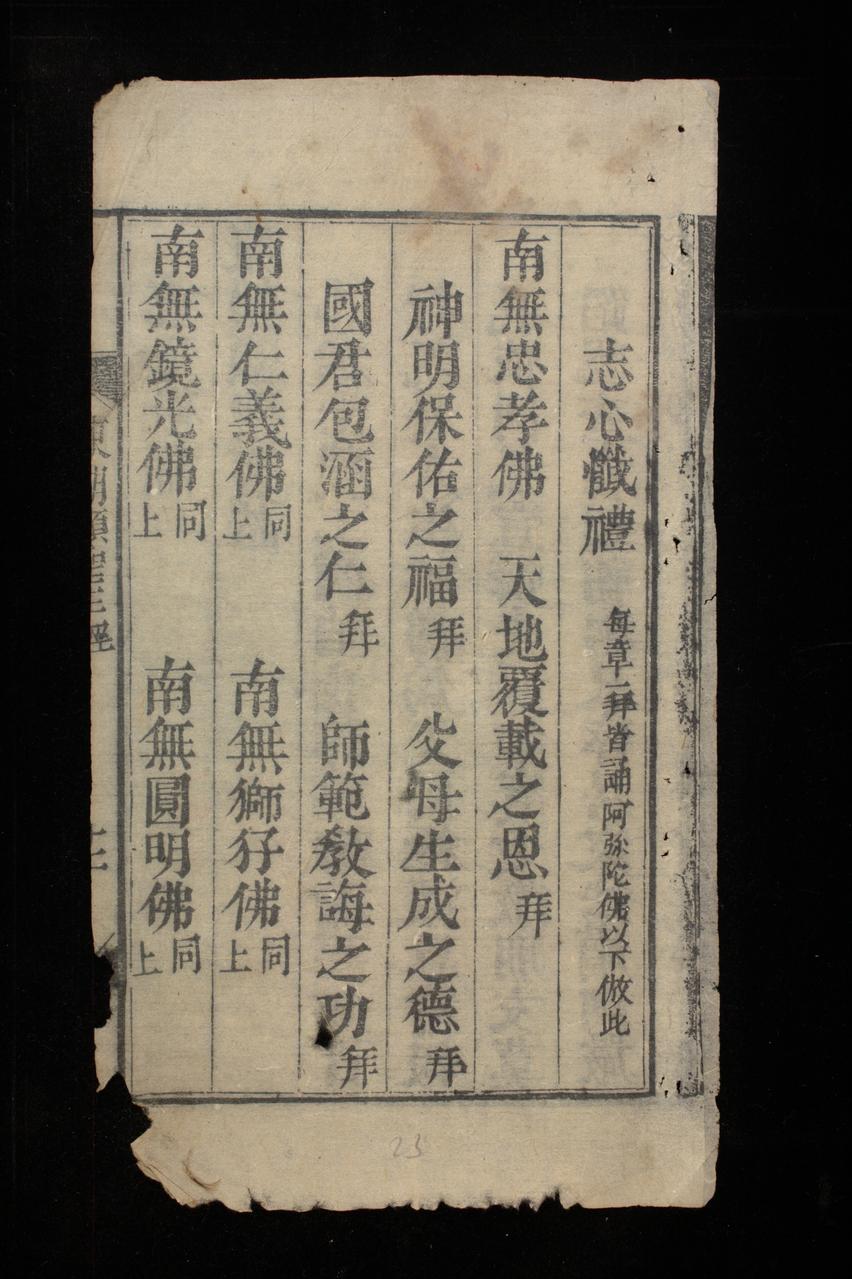 志心懺禮 每章一拜皆誦阿弥陀佛以下倣此
南無忠孝佛 天地覆載之恩 拜
神明保佑之福 拜 父母生成之德 拜
國君包涵之仁 拜 師範教誨之功 拜
南無仁義佛 同上 南無獅㹨佛 同上
南無鏡光佛 同上 南無圓明佛 同上
經
23